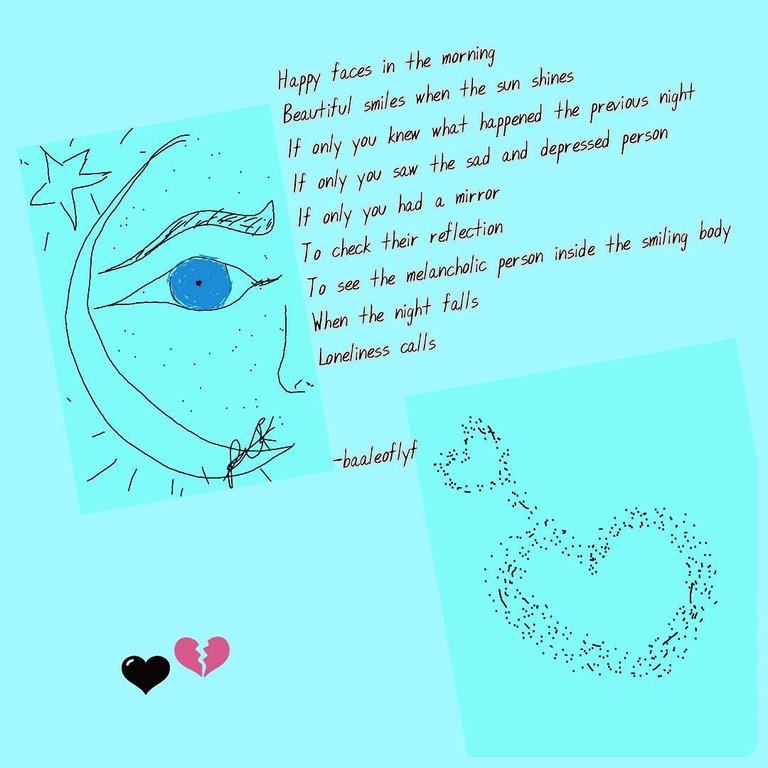 Happy faces in the morning
Beautiful smiles when the sun shines
If only you knew what happened the previous night
If only you saw the sad and depressed person
If only you had a mirror
To check their reflection
To see the melancholic person inside the smiling body
When the night falls
Loneliness calls
-baaleoflyf